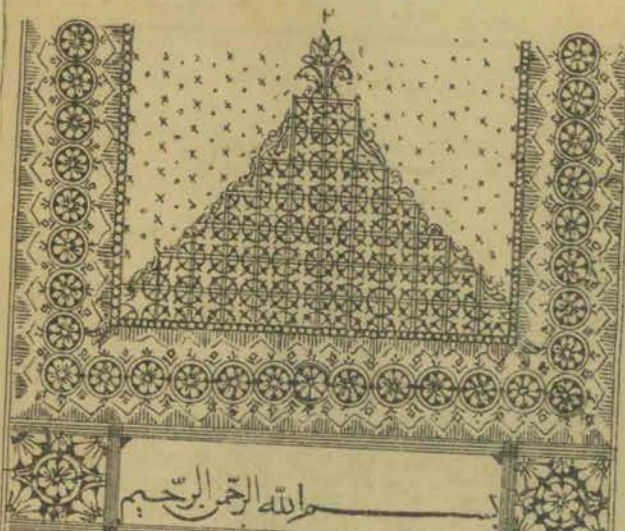 ٢
بسم الله الرّحمن الرّحيم